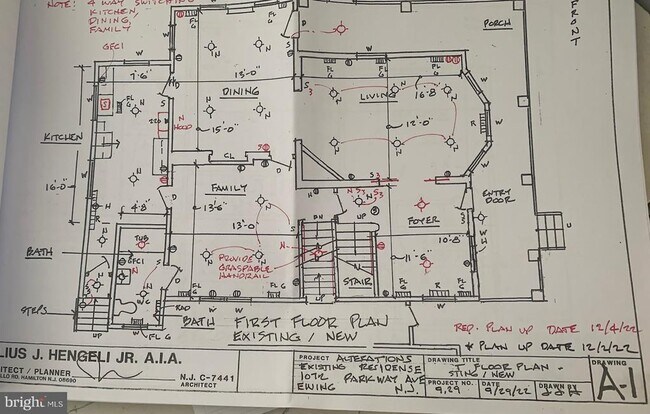 NOTE: 4 WAY SWITCHING
KITCHEN,
DINING,
FAMILY
GFCI
PORCH
FRONT
7'-6"
13'-0"
DINING
LIVING
16'-8
12'-0"
15'-0"
N
HOOD
220
KITCHEN
16'-0"
CL
FAMILY
13'-6"
13'-0"
4'-8"
BATH
TUB
GFCI
W/C
STEPS
UP
PROVIDE
GRASPABLE
HANDRAIL
DN
UP
UP
STAIR
FOYER
10'-8"
11'-6"
ENTRY
DOOR
WH
RAD
FL G
BATH
FIRST FLOOR PLAN
EXISTING / NEW
REP. PLAN UP DATE 12/4/22
* PLAN UP DATE 12/2/22
LIUS J. HENGELI JR. A.I.A.
ITECT / PLANNER
LLO RD. HAMILTON NJ 08690
N.J. C-7441
ARCHITECT
PROJECT ALTERATIONS
EXISTING RESIDENSE
1072 PARKWAY AVE
EWING N.J.
DRAWING TITLE
FLOOR PLAN -
STING / NEW
PROJECT NO. 9,29
DATE 9/29/22
DRAWN BY
DRAWING
A-1
BRIGHT MLS